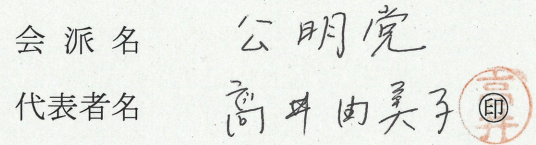 会派名 公明党
代表者名 高井由美子 ㊞